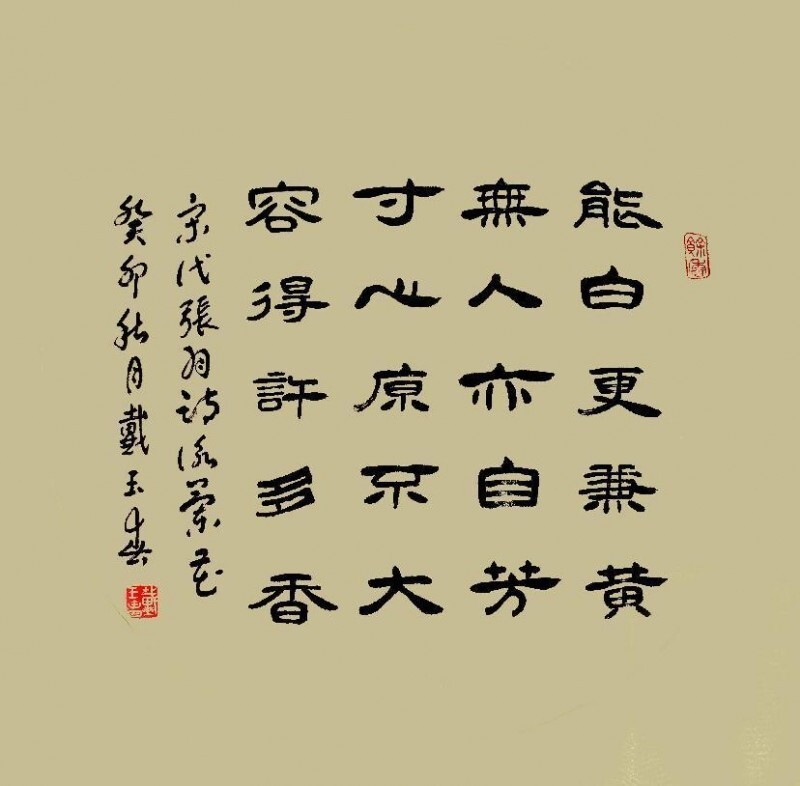 能白更兼黄
無人亦自芳
寸心原不大
容得許多香
宋代張羽詩詠蘭花
癸卯秋月戴玉春